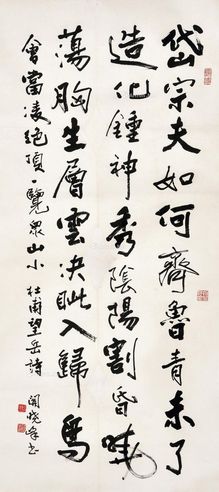 岱宗夫如何齊魯青未了
造化鍾神秀陰陽割昏曉
蕩胸生層雲決眦入歸鳥
會當凌絕頂一覽眾山小 杜甫望岳詩